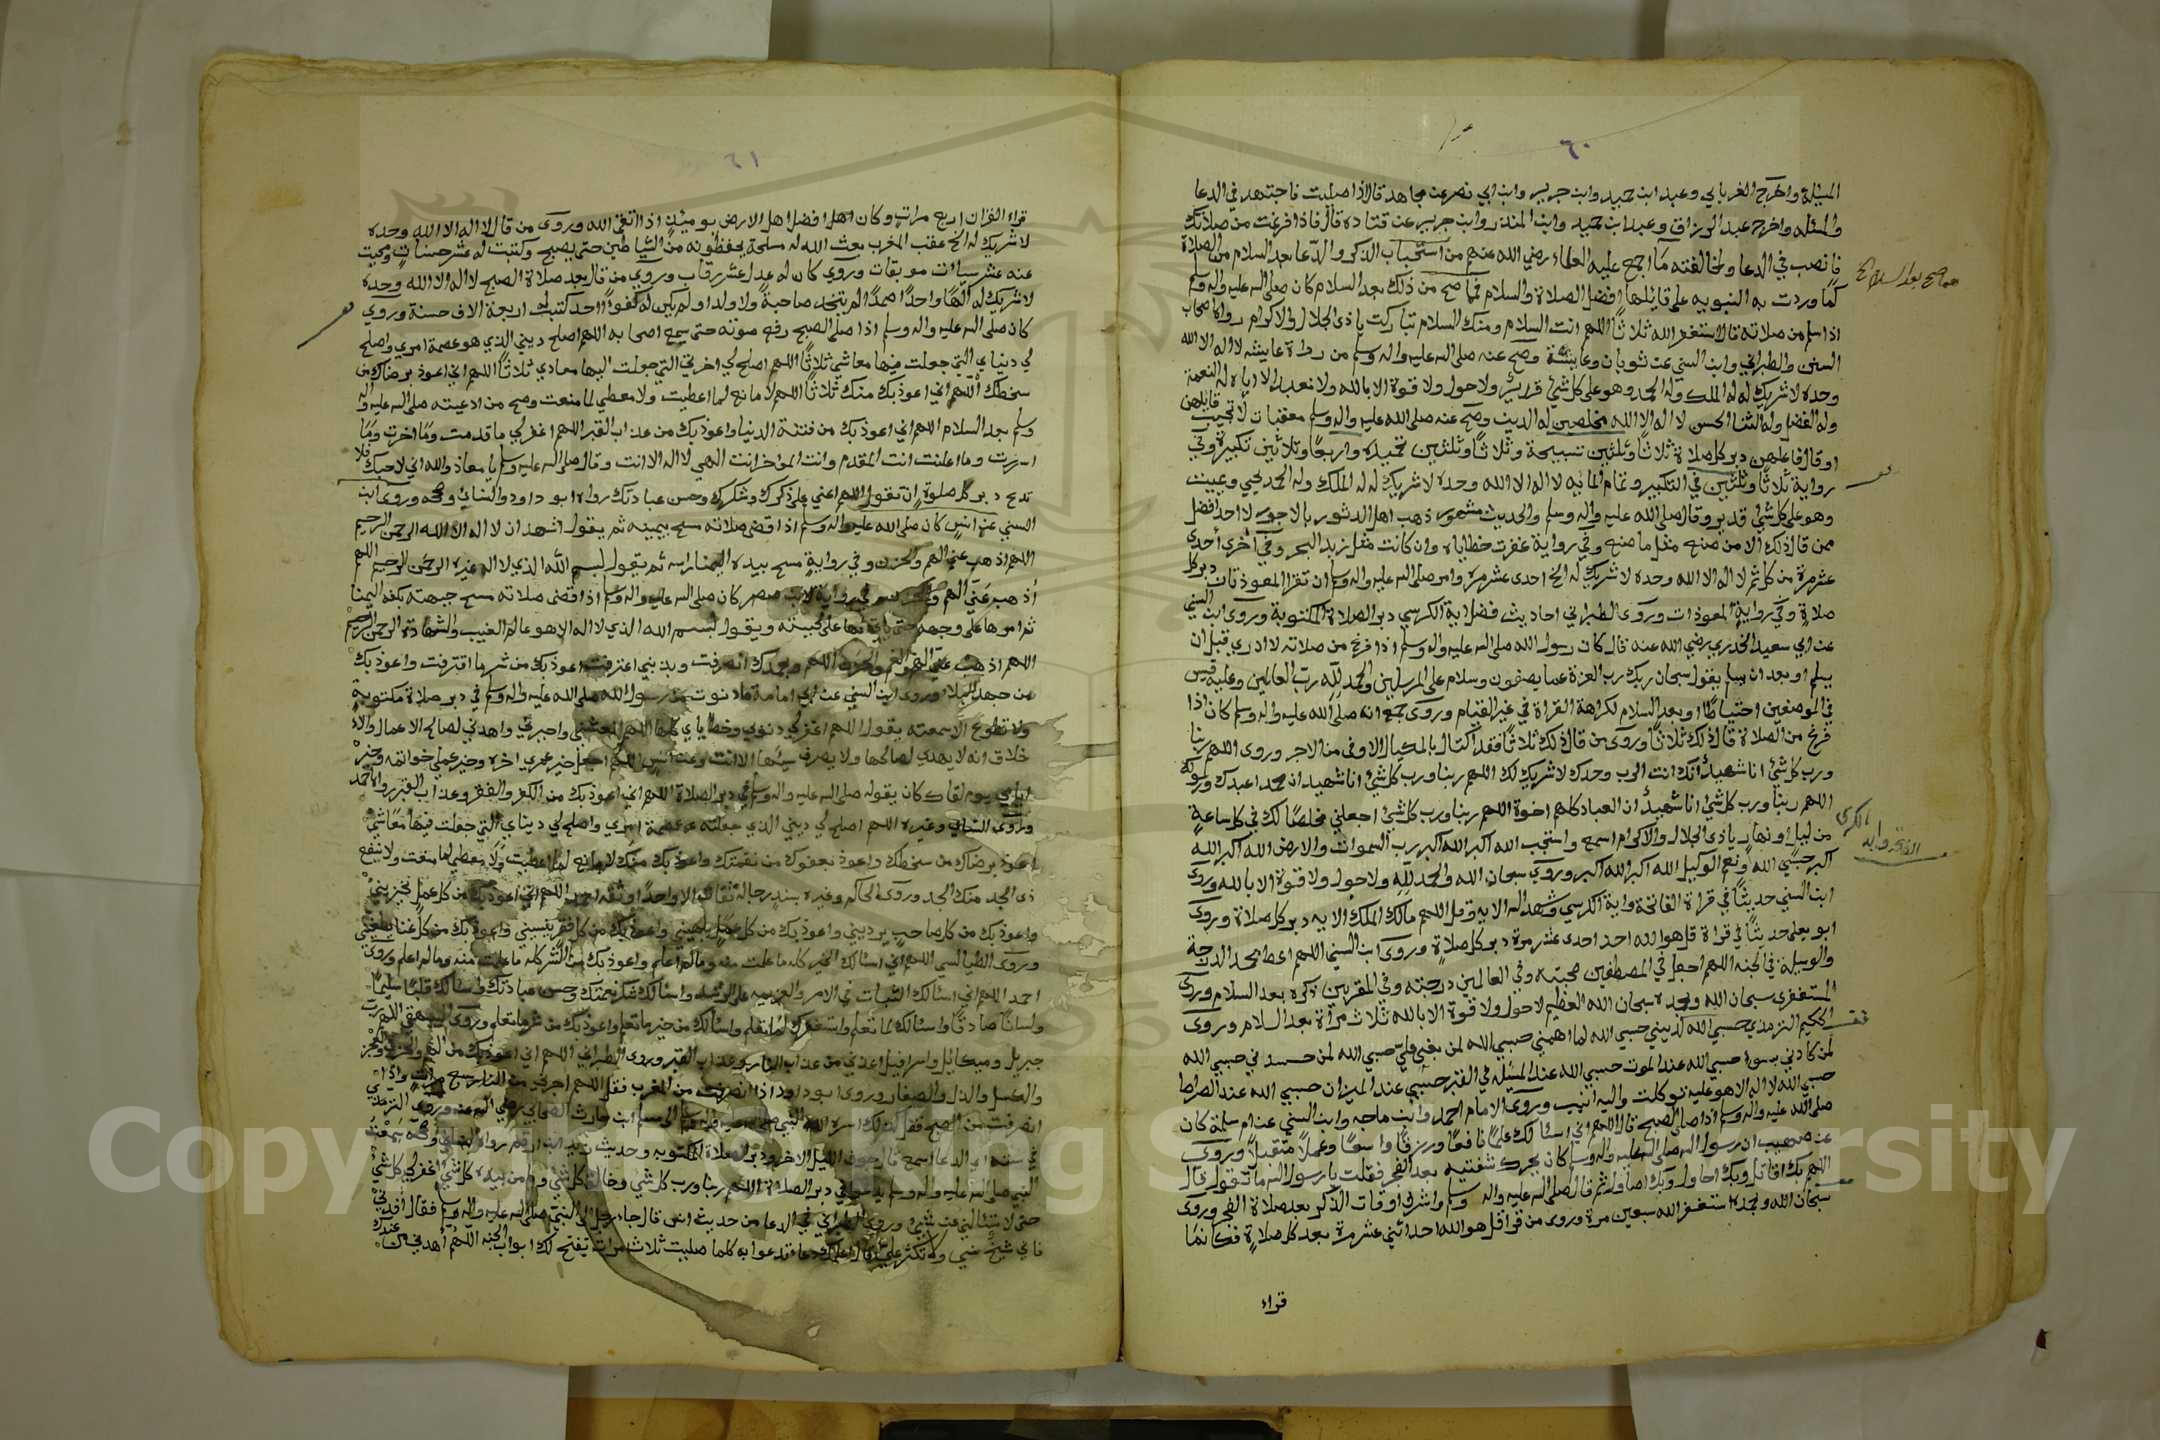 ٦٠
المسئلة واخرج الفريابي وعبد ابن حميد وابن جرير وابن ابي نصر عن مجاهد قال اذا صليت فاجتهد في الدعا
والمسئله واخرج عبد الرزاق وعبد ابن حميد وابن المنذر وابن جرير عن قتاده قال فاذا فرغت من صلاتك
فانصب في الدعا ولمخالفته ما اجمع عليه العلماء رضي الله عنهم من استحباب الذكر والدعا بعد السلام من الصلاة
كما وردت به النبويه على قائلها افضل الصلاة والسلام فما صح من ذلك بعد السلام كان صلى الله عليه واله وسلم
اذا سلم من صلاته قال استغفر الله ثلاثا اللهم انت السلام ومنك السلام تباركت ياذي الجلال والاكرام رواه اصحاب
السنن والطبراني وابن السني عن ثوبان وعايشة وصح عنه صلى الله عليه واله وسلم من رواة عايشه لا اله الا الله
وحده لا شريك له له الملك وله الحمد وهو على كل شيء قدير ولا حول ولا قوة الا بالله ولا نعبد الا اياه له النعمة
وله الفضل وله الثنا الحسن لا اله الا الله مخلصين له الدين وصح عنه صلى الله عليه واله وسلم معقبات لا تخيب قائلهن
او قال فاعلهن دبر كل صلاة ثلاثا وثلثين تسبيحة وثلاثا وثلثين تحميده واربعا وثلاثين تكبيرة وفي
رواية ثلاثا وثلثين في التكبير وتمام المائه لا اله الا الله وحده لا شريك له له الملك وله الحمد يحيي ويميت
وهو على كل شيء قدير وقال صلى الله عليه واله وسلم والحديث مشهور ذهب اهل الدثور بالاجور لا احد افضل
ممن قال ذلك الا من صنع مثل ما صنع وفي رواية غفرت خطاياه وان كانت مثل زبد البحر وفي اخرى أحدى
عشر مرة من كل ثم لا اله الا الله وحده لا شريك له الخ احدى عشر مرة وامر صلى الله عليه واله وسلم ان تقرا المعوذتان دبر كل
صلاة وفي رواية المعوذات وروى الطبراني احاديث فضل اية الكرسي دبر الصلاة المكتوبة وروى ابن السني
عن ابي سعيد الخدري رضي الله عنه قال كان رسول الله صلى الله عليه واله وسلم اذا فرغ من صلاته لا ادري قبل ان
يسلم او بعد ان يسلم يقول سبحان ربك رب العزة عما يصفون وسلام على المرسلين والحمد لله رب العالمين وعليه قيس
في الموضعين احتياطا او بعد السلام لكراهة القراة في غير القيام وروى جمع انه صلى الله عليه واله وسلم كان اذا
فرغ من الصلاة قال ذلك ثلاثا وروى من قال ذلك ثلاثا فقد اكتال بالمكيال الاوفى من الاجر وروى اللهم ربنا
ورب كل شيء انا شهيد انك انت الرب وحدك لا شريك لك اللهم ربنا ورب كل شيء انا شهيد ان محمد اعبدك ورسولك
اللهم ربنا ورب كل شيء انا شهيد ان العباد كلهم اخوة اللهم ربنا ورب كل شيء اجعلني مخلصا لك في كل ساعة
من ليل او نهار ياذي الجلال والاكرام اسمع واستجب الله اكبر الله اكبر رب السموات والارض الله اكبر الله
اكبر حسبي الله ونعم الوكيل الله اكبر الله اكبر وروي سبحان الله والحمد لله ولا حول ولا قوة الا بالله وروى
ابن السني حديثا في قراة الفاتحة واية الكرسي وشهد الله الايه وقل اللهم مالك الملك الايه دبر كل صلاة وروى
ابو يعلى حديثا في قراة قل هو الله احد احدى عشر مرة دبر كل صلاة وروى ابن السني اللهم اعط محمد الدرجة
والوسيلة في الجنه اللهم اجعل في المصطفين محبته وفي العالمين درجته وفي المقربين ذكره بعد السلام وروى
المستغفري سبحان الله وبحمده سبحان الله العظيم لا حول ولا قوة الا بالله ثلاث مرأة بعد السلام وروى
الحكيم الترمذي حسبي الله لديني حسبي الله لما اهمني حسبي الله لمن بغى علي حسبي الله لمن حسدني حسبي الله
لمن كادني بسوء حسبي الله عند الموت حسبي الله عند المسئله في القبر حسبي عند الميزان حسبي الله عند الصراط
حسبي الله لا اله الا هو عليه توكلت واليه انيب وروى الامام احمد وابن ماجه وابن السني عن ام سلمة كان
صلى الله عليه واله وسلم اذا صلى الصبح قال اللهم اني اسئالك علما نافعا ورزقا واسعا وعملا متقبلا وروى
عن صهيب ان رسول الله صلى الله عليه واله وسلم كان يحرك شفتيه بعد الفجر فقلت يا رسول الله ما تقول قال
اللهم بك اقاتل وبك احاول وبك اصاول ثم قال صلى الله عليه واله وسلم واشرف اوقات الذكر بعد صلاة الفجر وروى
سبحان الله وبحمده استغفر الله سبعين مرة وروى من قرا قل هو الله احد اثني عشر مرة بعد كل صلاة فكانما
قراء
٦١
قراء القران اربع مرات وكان اهل افضل اهل الارض يوميئذ اذا اتقى الله وروى من قال لا اله الا الله وحده
لا شريك له الخ عقب المغرب بعث الله له مسلحة يحفظونه من الشياطين حتى يصبح وكتبت له عشر حسنات ومحيت
عنه عشر سيئات موبقات وروي كان له عدل عشر رقاب وروي من قال بعد صلاة الصبح لا اله الا الله وحده
لا شريك له الها واحدا صمدا لم يتخذ صاحبة ولا ولدا ولم يكن له كفوا احد كتبت له اربعة الاف حسنة وروي
كان صلى الله عليه واله وسلم اذا صلى الصبح رفع صوته حتى يسمع اصحابه اللهم اصلح ديني الذي هو عصمة امري واصلح
لي دنياي التي جعلت فيها معاشي ثلاثا اللهم اصلح لي اخرتي التي جعلت اليها معادي ثلاثا اللهم اني اعوذ برضاك من
سخطك اللهم اني اعوذ بك منك ثلاثا اللهم لا مانع لما اعطيت ولا معطي لما منعت وصح من ادعيته صلى الله عليه واله
وسلم بعد السلام اللهم اني اعوذ بك من فتنة الدنيا واعوذ بك من عذاب القبر اللهم اغفر لي ما قدمت وما اخرت وما
اسررت وما اعلنت انت المقدم وانت المؤخر انت الهي لا اله الا انت وقال صلى الله عليه وسلم يا معاذ والله اني لاحبك فلا
تدع دبر كل صلوة ان تقول اللهم اعني على ذكرك وشكرك وحسن عبادتك رواه ابو داود والنسائي وصححه وروى ابن
السني عن انس كان صلى الله عليه واله وسلم اذا قضى صلاته مسح بيمينه ثم يقول اشهد ان لا اله الا الله الرحمن الرحيم
اللهم اذهب عني الهم والحزن وفي رواية مسح بيده اليمنا راسه ثم يقول بسم الله الذي لا اله غيره الرحمن الرحيم اللهم
أذهب عني الهم كان صلى الله عليه واله وسلم اذا قضى صلاته مسح جبهته بكفه اليمنا
ثم امرها على وجهه حتى ياتي بها على لحيته ويقول بسم الله الذي لا اله الا هو عالم الغيب والشهادة الرحمن الرحيم
اللهم اذهب عني الغم والحزن اللهم وبحمدك انصرفت وبذنبي اعترفت اعوذ بك من شر ما اقترفت واعوذ بك
من جهد البلاء وروى ابن السني عن ابي امامة ما دنوت من رسول الله صلى الله عليه واله وسلم في دبر صلاة مكتوبة
ولا تطوع الا سمعته يقول اللهم اغفر لي ذنوبي وخطاياي كلها اللهم انعشني واجبرني واهدني لصالح الاعمال والا
خلاق انه لا يهدي لصالحها ولا يصرف سيئها الا انت وعن انس اللهم اجعل خير عمري اخره وخير عملي خواتمه وخير
ايامي يوم لقاك كان يقوله صلى الله عليه واله وسلم في دبر الصلاة اللهم اني اعوذ بك من الكفر والفقر وعذاب القبر رواه احمد
وروى النسائي وغيره اللهم اصلح لي ديني الذي جعلته عصمة امري واصلح لي دنياي التي جعلت فيها معاشي
اعوذ برضاك من سخطك واعوذ بعفوك من نقمتك واعوذ بك منك لا مانع لما اعطيت ولا معطي لما منعت ولا ينفع
ذى الجد منك الجد وروى الحاكم وغيره بسند رجاله ثقات الا واحدا اللهم اني اعوذ بك من كل عمل يخزيني
واعوذ بك من كل صاحب يرديني واعوذ بك من كل عمل يلهيني واعوذ بك من كل فقر ينسيني واعوذ بك من كل غنا يطغيني
وروى الطيالسي اللهم اني اسئالك الخير كله ما علمت منه وما لم اعلم واعوذ بك من الشر كله ما علمت منه وما لم اعلم وروى
احمد اللهم اني اسئالك الثبات في الامر والعزيمه على الرشد واسئالك شكر نعمتك وحسن عبادتك واسئالك قلبا سليما
ولسانا صادقا واسئالك لما تعلم واستغفرك لما تعلم واسئالك من خير ما تعلم واعوذ بك من شر ما تعلم وروى البيهقي اللهم رب
جبريل وميكائيل واسرافيل اعذني من عذاب النار وعذاب القبر وروى الطبراني اللهم اني اعوذ بك من الهم والحزن والعجز
والكسل والذل والصغار وروى ابو داود اذا انصرفت من المغرب فقل اللهم اجرني من النار سبع مرات واذا
انصرفت من الصبح فقل ذلك اسره اليه النبي صلى الله عليه وسلم الى مسلم ابن حارث الصحابي رضي الله عنه وروى الترمذي
في سننه اي الدعا اسمع قال جوف الليل الاخر ودبر الصلاة المكتوبه وحديث زيد ابن ارقم رواه النسائي سمعت
النبي صلى الله عليه واله وسلم يدعو في دبر الصلاة اللهم ربنا ورب كل شي وخالق كل شي ومن بيده كل شي اغفر لي كل شي
حتى لا تسئالني عن شي وروى الطبراني في الدعا من حديث انس قال جاء رجل الى النبي صلى الله عليه واله وسلم فقال
فاني شيخ نسي ولا تكثر علي قال اعلمك دعاء تدعوا به كلما صليت ثلاث مرات يفتح لك ابواب الجنه اللهم أهدني من عندك